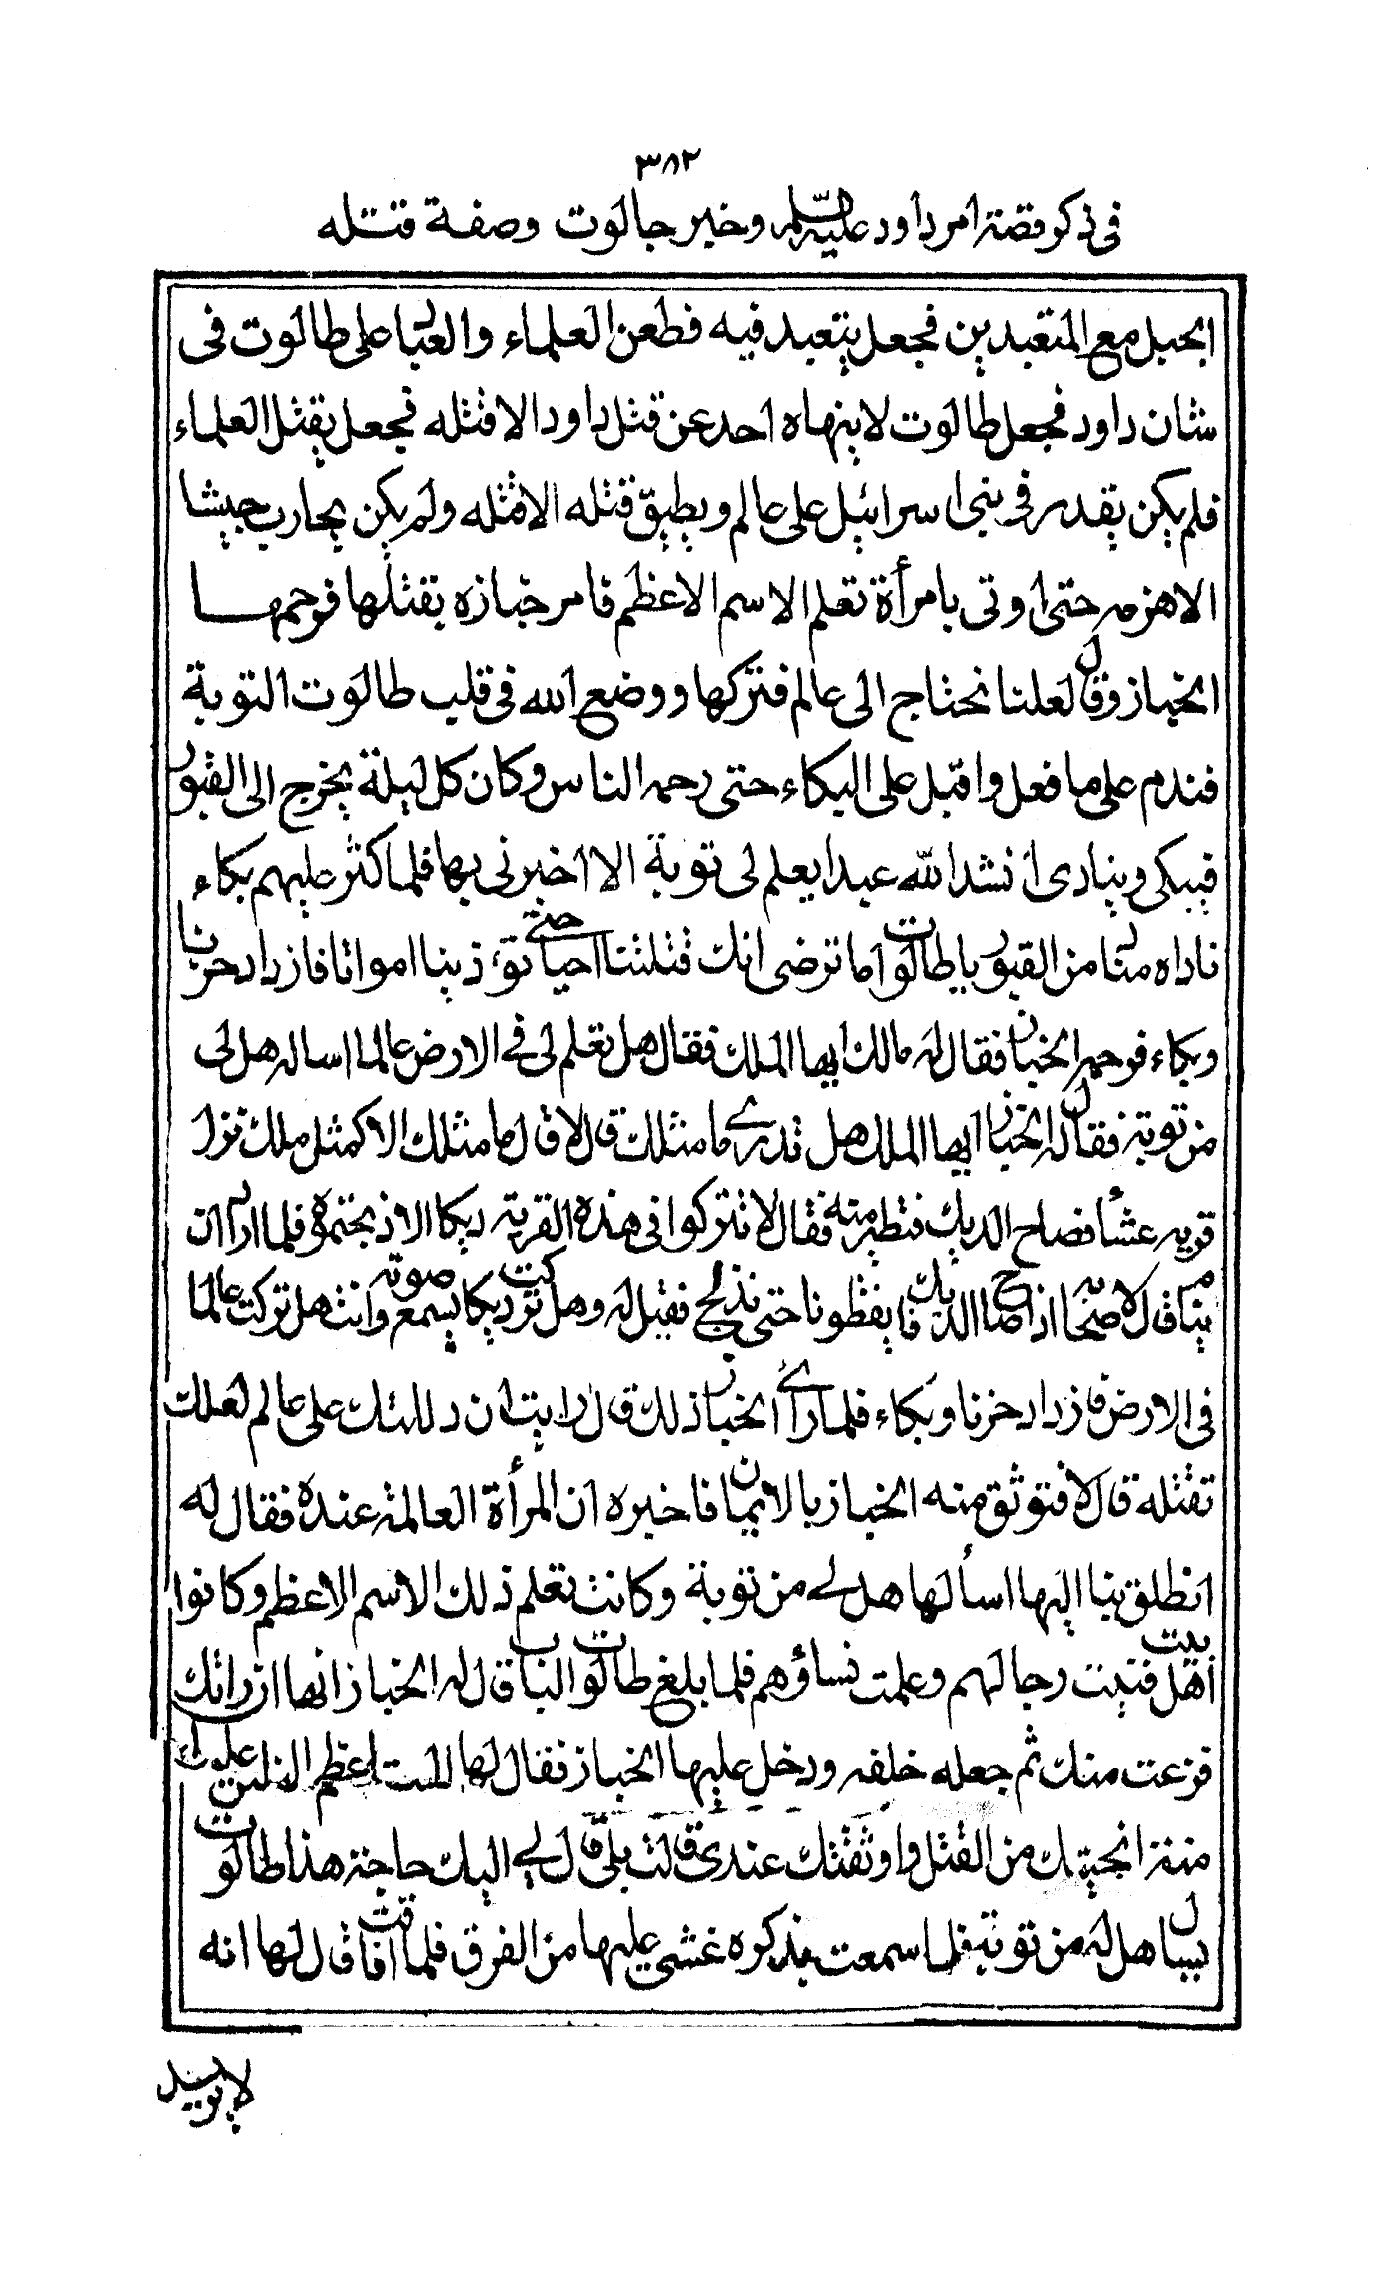 ٣٨٢
في ذكر قصة امر داود عليه السلم وخبر جالوت وصفة قتله
الجبل مع المتعبدين فجعل يتعبد فيه فطعن العلماء والعباد على طالوت في
شان داود فجعل طالوت لا ينهاه احد عن قتل داود الا قتله فجعل يقتل العلماء
فلم يكن يقدر في بني اسرائيل على عالم ويطيق قتله الا قتله ولم يكن يحارب جيشا
الا هزمه حتى اوتى بامرأة تعلم الاسم الاعظم فامر خبازه بقتلها فرحمها
الخباز وقال لعلنا نحتاج الى عالم فتركها ووضع الله في قلب طالوت التوبة
فندم على ما فعل واقبل على البكاء حتى رحمه الناس وكان كل ليلة يخرج الى القبور
فيبكي وينادي انشد الله عبدا يعلم لي توبة الا اخبرني بها فلما كثر عليهم بكاء
ناداه مناد من القبور يا طالوت اما ترضى انك قتلتنا احياء حتى تؤذينا امواتا فازداد حزنا
وبكاء فرحمه الخباز فقال له مالك ايها الملك فقال هل تعلم لي في الارض عالما اساله هل لي
من توبة فقال له الخباز ايها الملك هل تدري ما مثلك قال لا قال ما مثلك الا كمثل ملك نزل
قرية عشاً فصاح الديك فتطير منه فقال لا تتركوا في هذه القرية ديكا الا ذبحتموه فلما اراد ان
ينام قال لاصحابه اذا صاح الديك فايقظونا حتى ندلج فقيل له وهل تركت ديكا يسمع صوته وانت هل تركت عالما
في الارض فازداد حزنا وبكاء فلما راى الخباز ذلك قال ارايت ان دللتك على عالم لعلك
تقتله قال لا فتوثق منه الخباز بالايمان فاخبره ان المرأة العالمة عنده فقال له
انطلق بنا اليها اسألها هل لي من توبة وكانت تعلم ذلك الاسم الاعظم وكانوا
اهل بيت فنيت رجالهم وعلمت نساؤهم فلما بلغ طالوت الباب قال له الخباز انها ان راتك
فزعت منك ثم جعله خلفه ودخل عليها الخباز فقال لها الست اعظم الناس عليك
منة انجيتك من القتل واوثقتك عندي قالت بلى قال لي اليك حاجة هذا طالوت
يسال هل له من توبة فلما سمعت بذكره غشي عليها من الفرق فلما افاقت قال لها انه
لا يريد